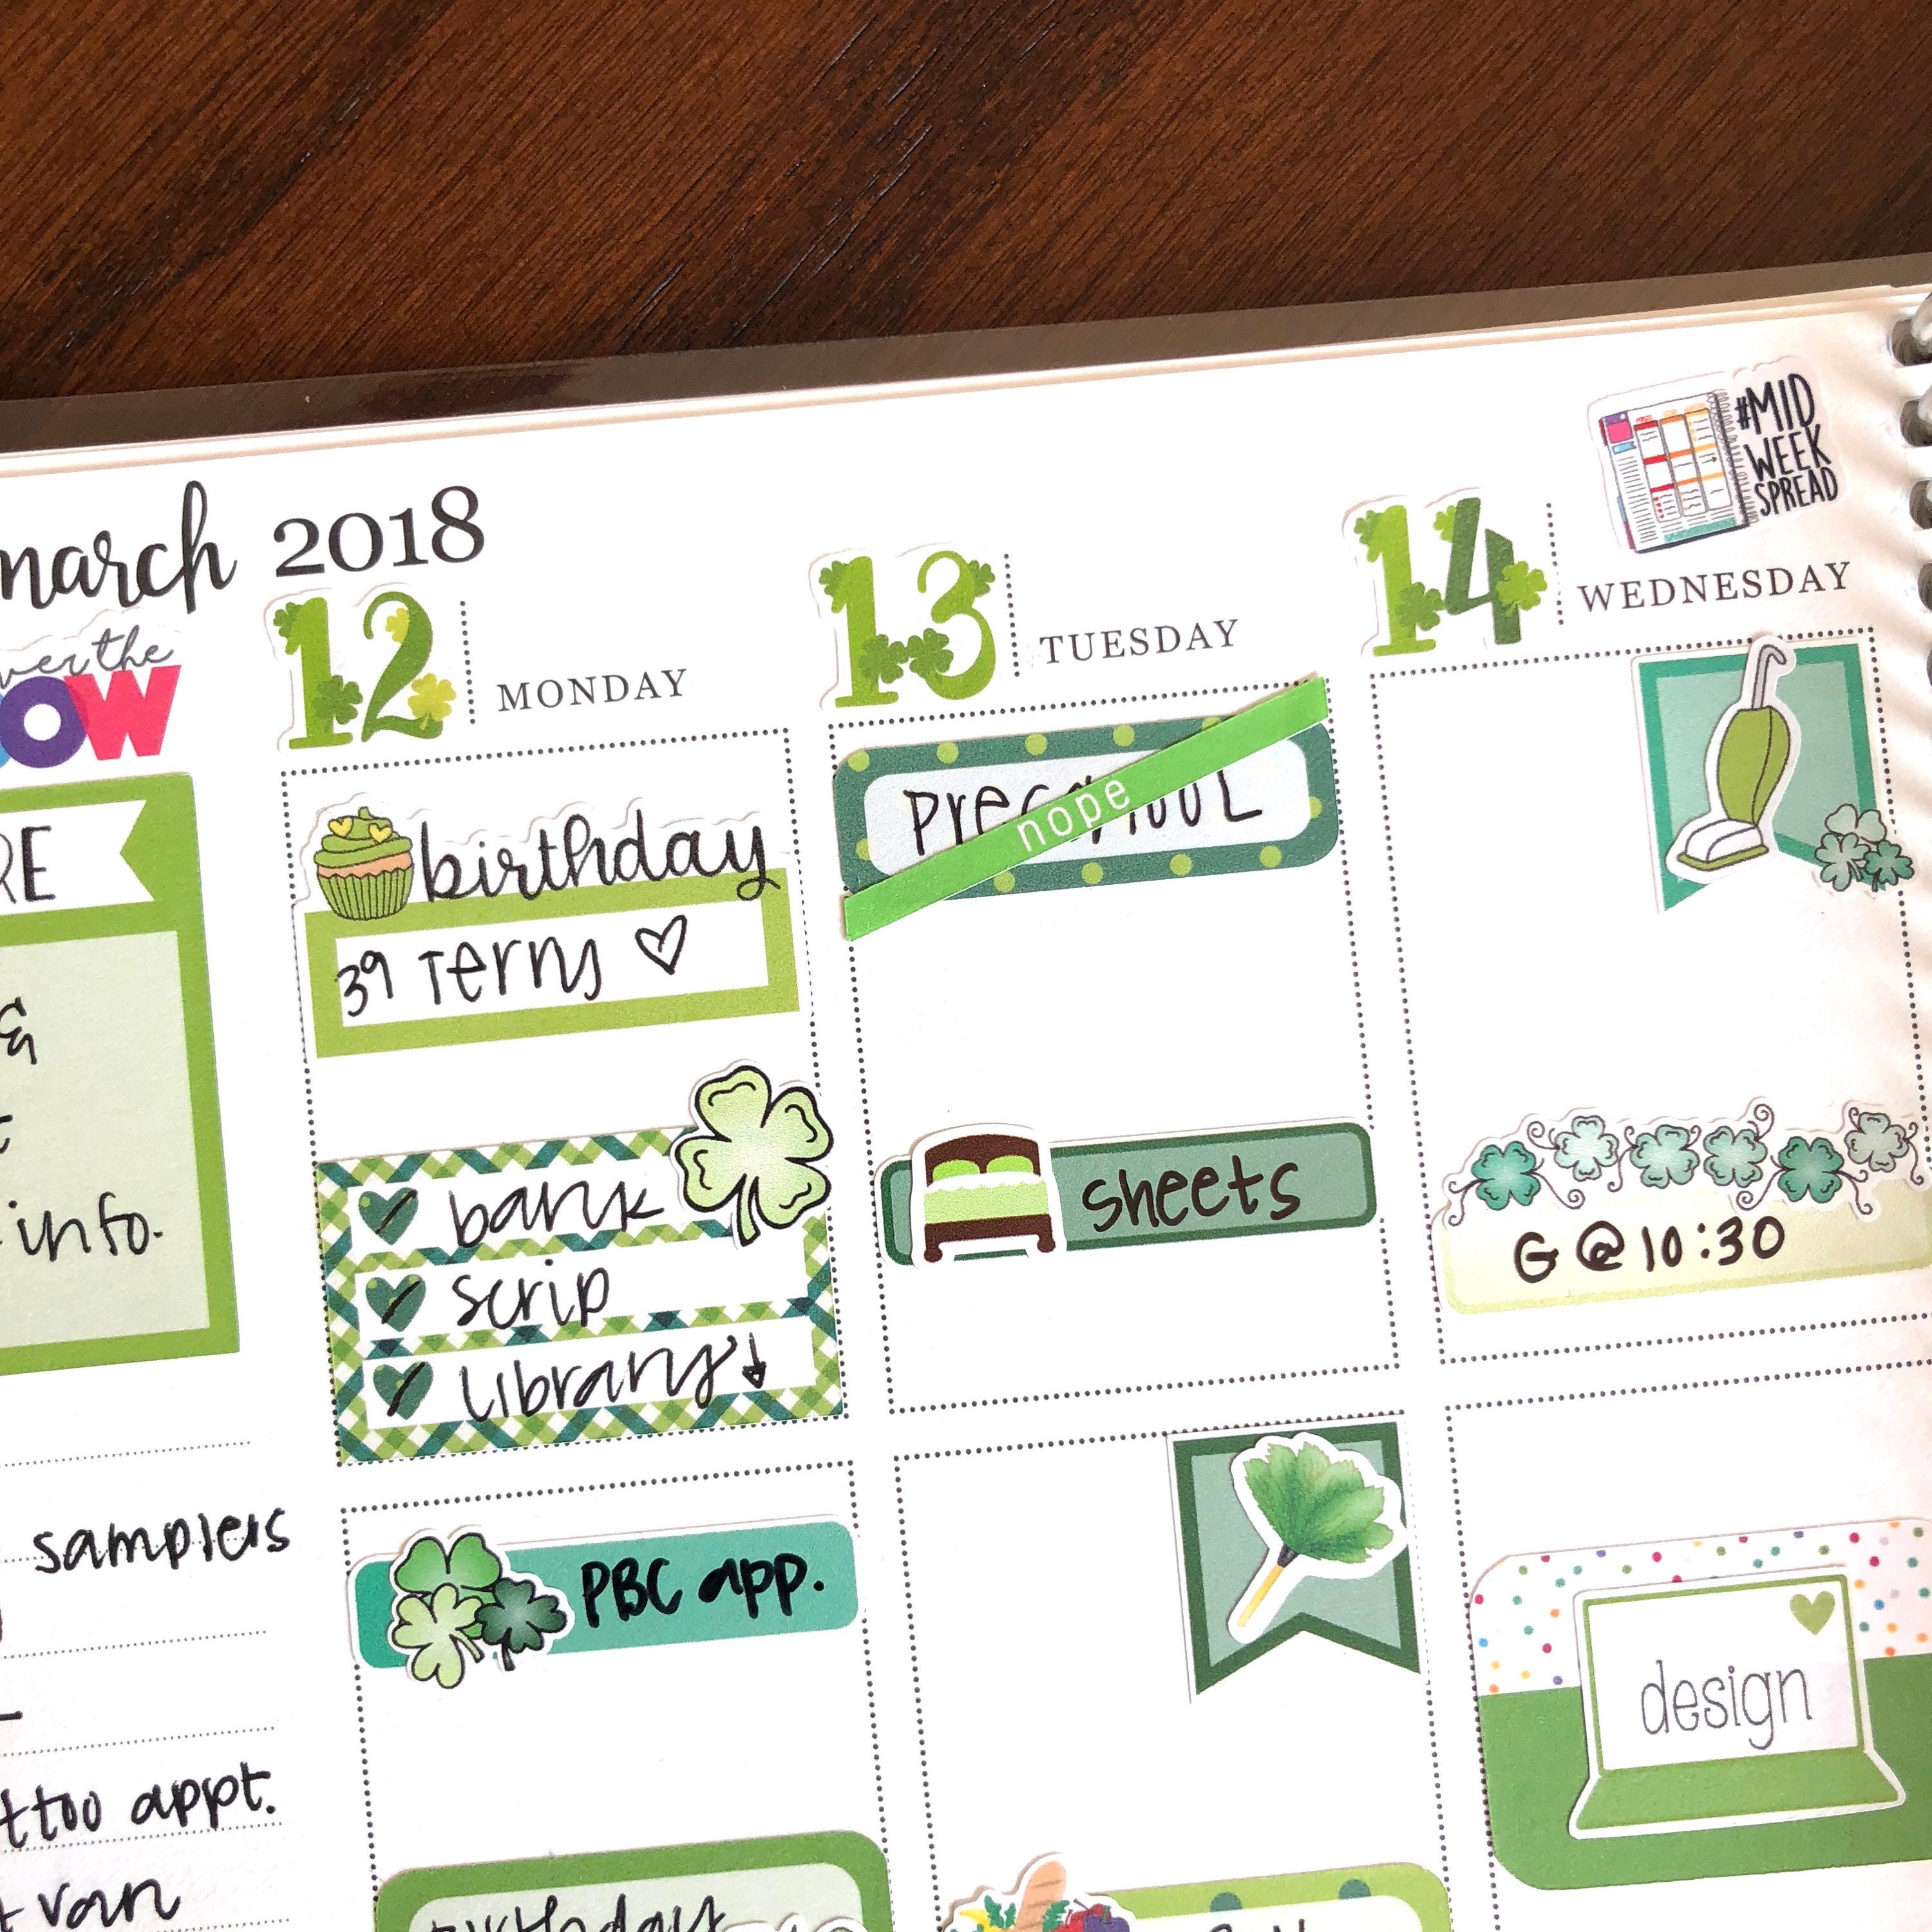 march 2018
over the
OW
RE
&
info.
samplers
ttoo appt.
van
12 MONDAY
birthday
39 Terns ♡
bank
scrip
library ↓
PBC app.
birthday
13 TUESDAY
preschool
nope
sheets
#MID
WEEK
SPREAD
14 WEDNESDAY
G @ 10:30
design